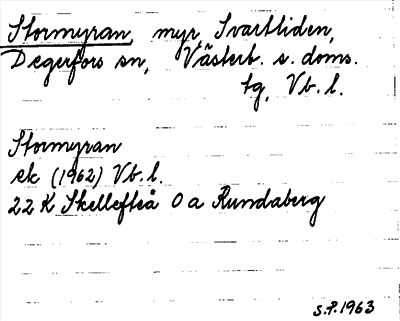 Stormyran, myr, Svartliden,
Degerfors sn, Västerb. s. doms.
tg, Vb. l.
Stormyran
ek (1962) Vb. l.
22 K Skellefteå O a Rundaberg
S.P. 1963